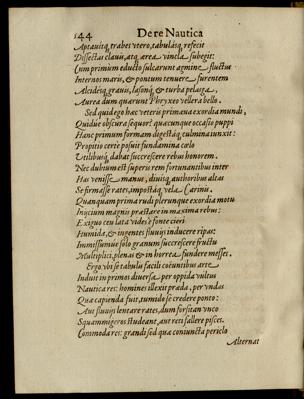 144 De re Nautica
Aptauitq́; trabes vtero, tabulasq́; refecit
Dissectas clauis, atq́; area vincla subegit:
Cum primum educto sulcarunt agmine fluctus
Interno maris, & pontum tenuere furentem
Alcidésq́; grauis, Iasonq́; & turba pelasga,
Aurea dum quærunt Phryxeo vellera bello.
Sed quid ego hæc veteris primæua exordia mundi,
Quidue obscura sequor? quacunque occasio puppi
Hanc primum formam digestáq́; culmina iunxit:
Propitio certè posuit fundamina cœlo
Vtilibusq́; dabat succrescere rebus honorem.
Nec dubium est superis rem fortunantibus inter
Has venisse manus, diuisq́; authoribus altas
Se firmasse rates, impostáq́; vela Carinis.
Quanquam prima rudi plerunque exordia motu
Inijcium magnis præstare in maxima rebus:
Exiguo ceu lata vides è fonte cieri
Humida, & ingentes fluuijs inducere ripas:
Immissumue solo granum succrescere fructu
Multiplici, plenas & in horrea fundere messes.
Ergo vbi se tabulæ facili coëuntibus arte
Induit in primos diuersa per oppida vultus
Nautica res: homines illexit præda, per vndas
Quæ capienda fuit, tumido se credere ponto:
Aut fluuijs lentare rates, dum forsitan vnco
Squammigeros studeant, aut reti fallere pisces.
Commoda res: grandi sed quæ coniuncta periclo
Alternat